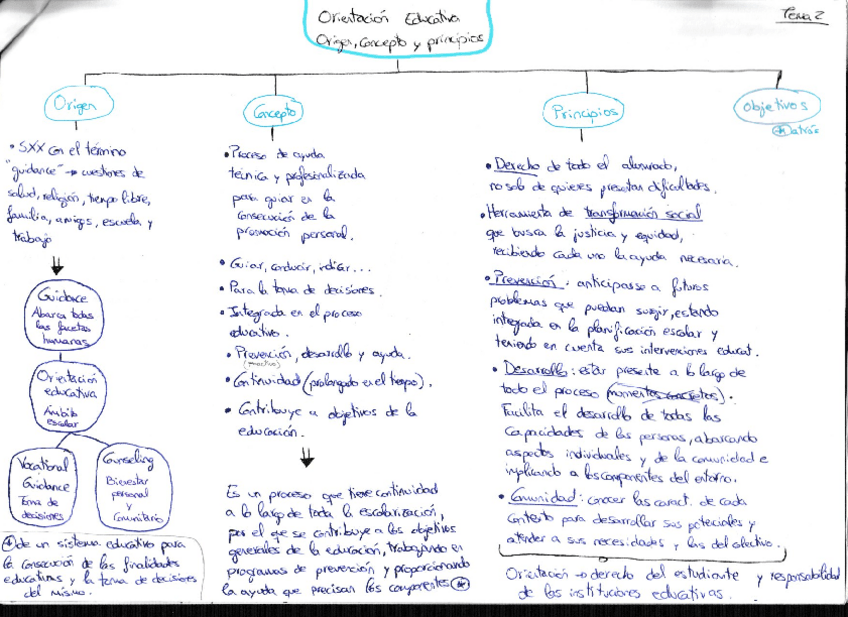 Tema 2
Orientación Educativa
Origen, Concepto y principios
Origen
• SXX con el término
"guidance" → cuestiones de
salud, religión, tiempo libre,
familia, amigos, escuela y
trabajo
Guidance
Abarca todas
las facetas
humanas
Orientación
educativa
Ámbito
escolar
Vocational
Guidance
Toma de
decisiones
Counseling
Bienestar
personal
y
Comunitario
de un sistema educativo para
la consecución de las finalidades
educativas y la toma de decisiones
del mismo.
Concepto
• Proceso de ayuda
técnica y profesionalizada
para guiar en la
consecución de la
promoción personal.
• Guiar, conducir, indicar...
• Para la toma de decisiones.
• Integrada en el proceso
educativo.
• Prevención, desarrollo y ayuda.
(proactivo)
• Continuidad (prolongado en el tiempo).
• Contribuye a objetivos de la
educación.
Es un proceso que tiene continuidad
a lo largo de toda la escolarización,
por el que se contribuye a los objetivos
generales de la educación, trabajando en
programas de prevención y proporcionando
la ayuda que precisan los componentes
Principios
• Derecho de todo el alumnado,
no solo de quienes presentan dificultades.
• Herramienta de transformación social
que busca la justicia y equidad,
recibiendo cada uno la ayuda necesaria.
• Prevención: anticiparse a futuros
problemas que puedan surgir, estando
integrada en la planificación escolar y
teniendo en cuenta sus intervenciones educat.
• Desarrollo: estar presente a lo largo de
todo el proceso (momentos concretos).
Facilita el desarrollo de todas las
Capacidades de las personas, abarcando
aspectos individuales y de la comunidad e
implicando a los componentes del entorno.
• Comunidad: conocer las caract. de cada
contexto para desarrollar sus potenciales y
atender a sus necesidades y las del colectivo.
Orientación → derecho del estudiante y responsabilidad
de las instituciones educativas.
Objetivos
Detrás